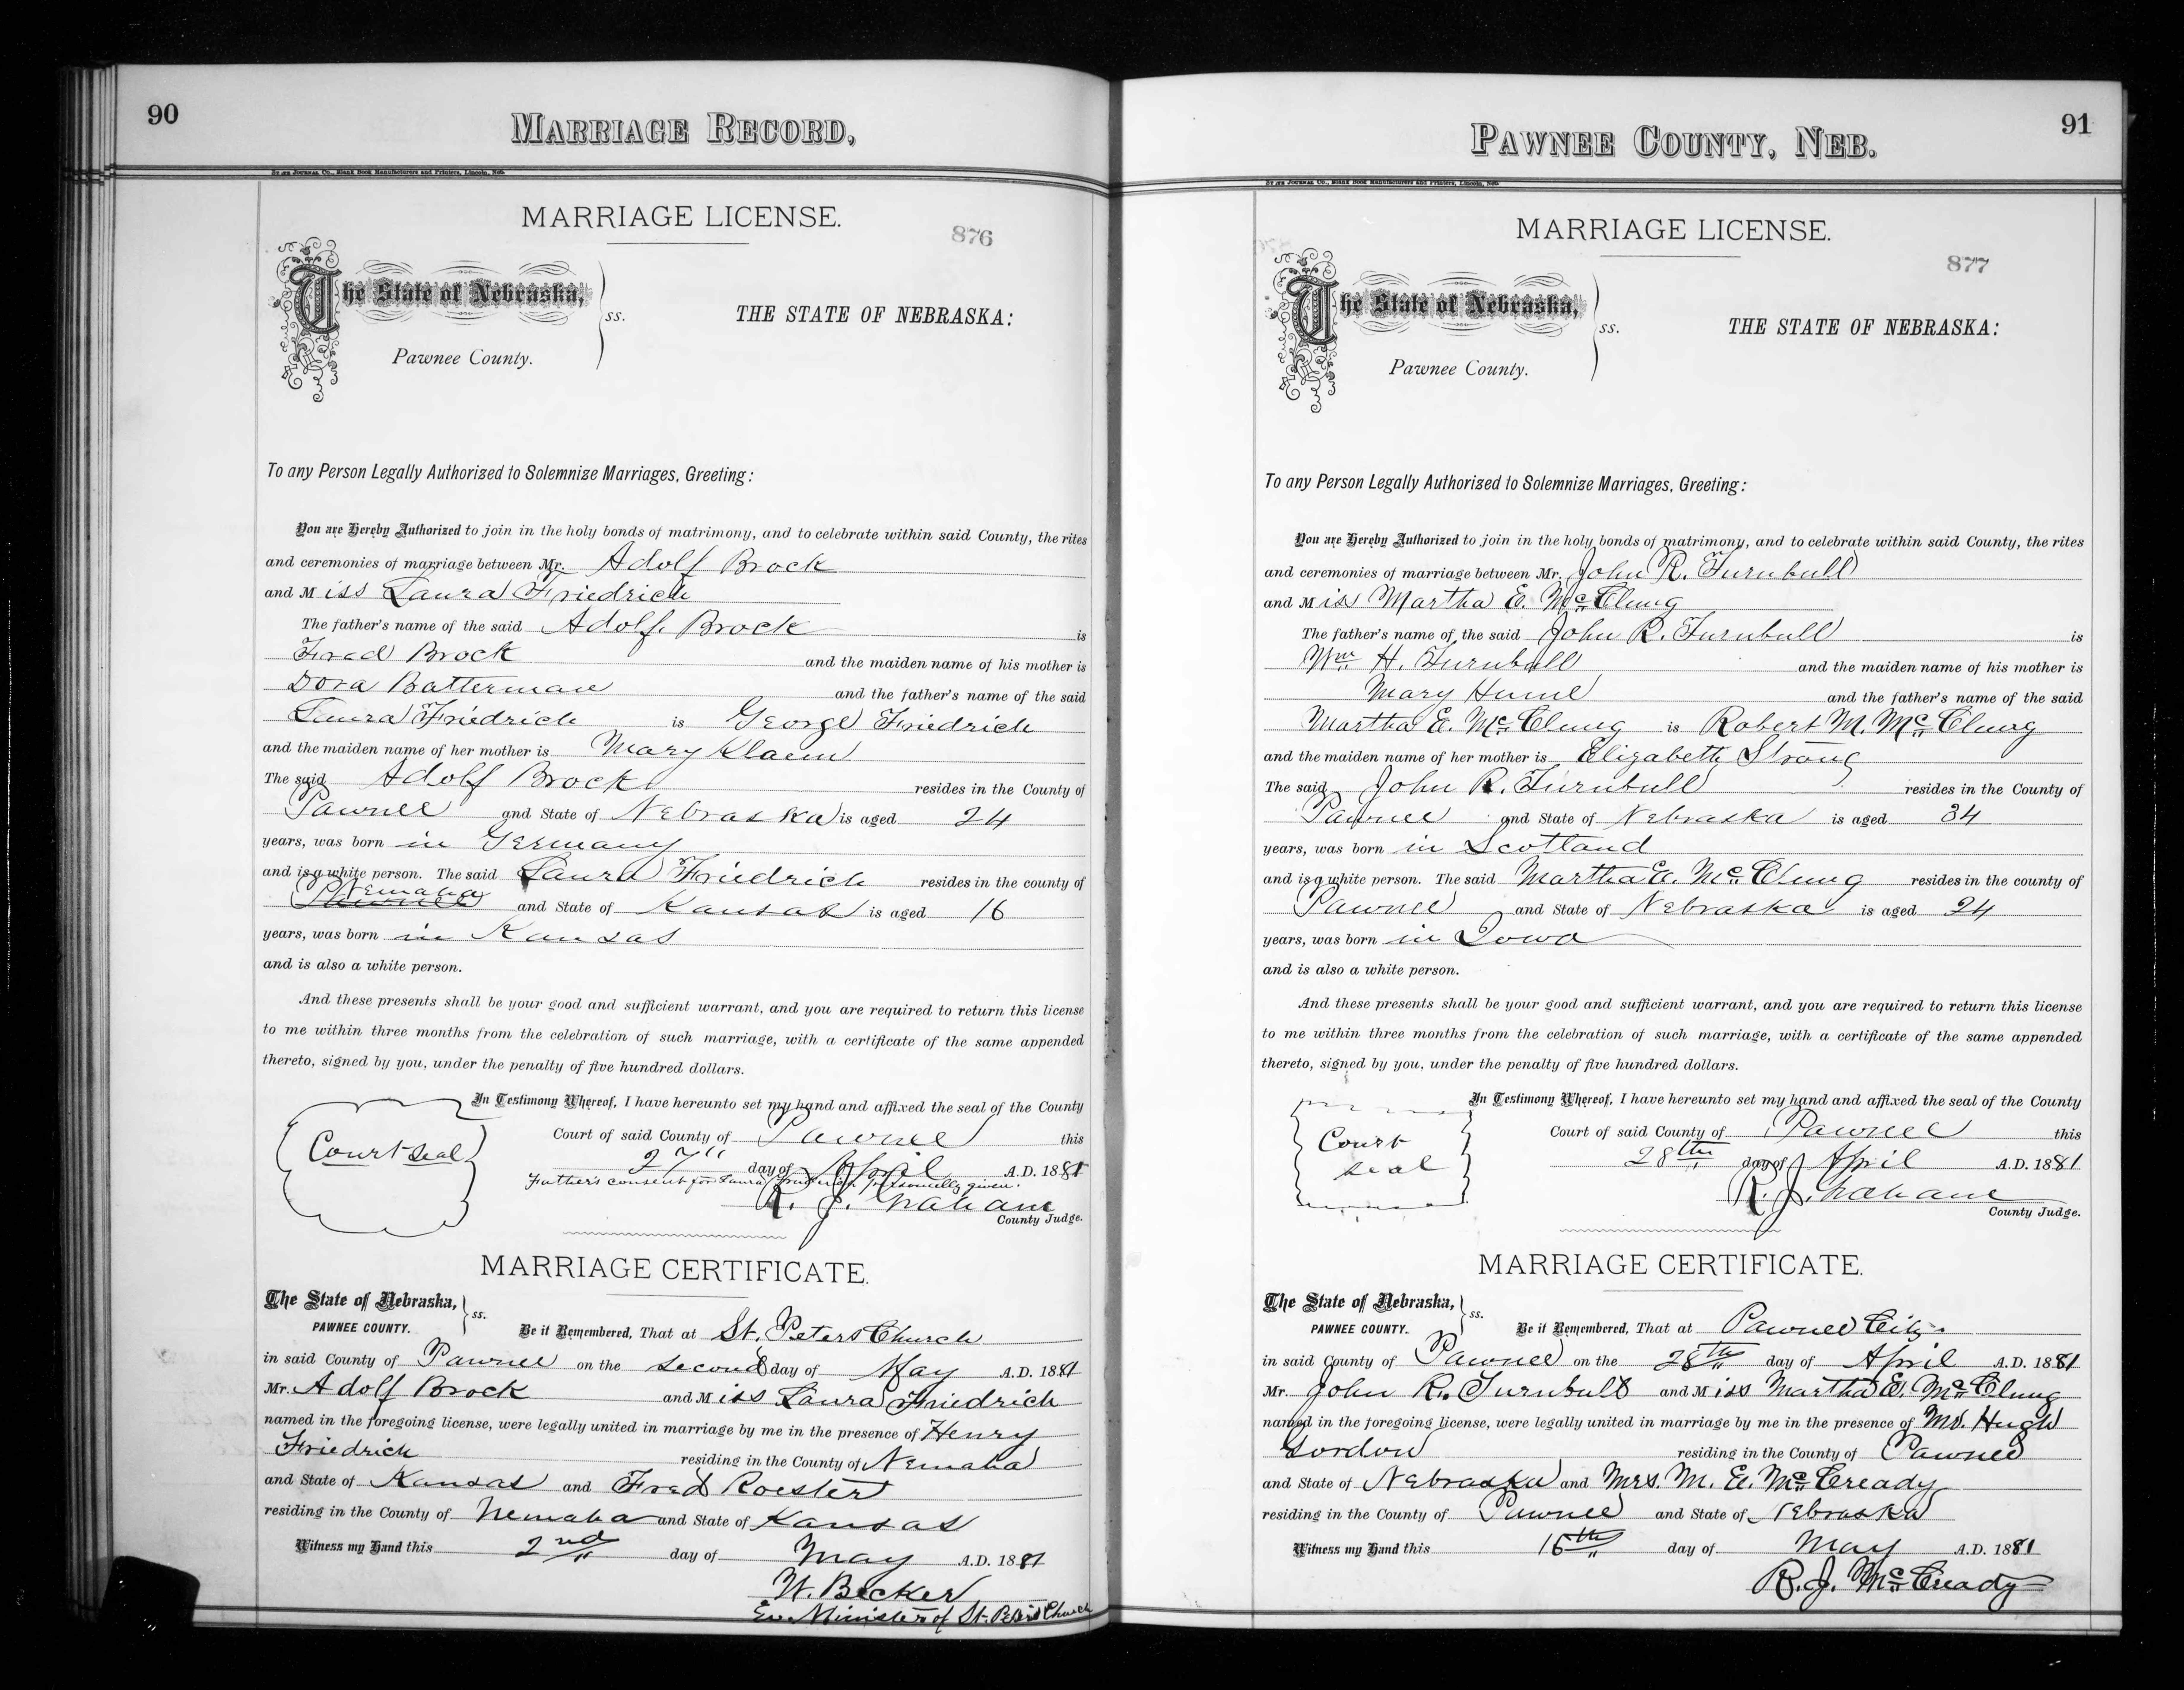 90
MARRIAGE RECORD,
BY THE JOURNAL CO., Blank Book Manufacturers and Printers, Lincoln, Neb.
MARRIAGE LICENSE.
876
The State of Nebraska, ss.
Pawnee County.
THE STATE OF NEBRASKA:
To any Person Legally Authorized to Solemnize Marriages, Greeting:
You are Hereby Authorized to join in the holy bonds of matrimony, and to celebrate within said County, the rites
and ceremonies of marriage between Mr. Adolf Brock
and Miss Laura Friedrich
The father's name of the said Adolf Brock is
Fred Brock and the maiden name of his mother is
Dora Batterman and the father's name of the said
Laura Friedrich is George Friedrich
and the maiden name of her mother is Mary
The said Adolf Brock resides in the County of
Pawnee and State of Nebraska is aged 24
years, was born in Germany
and is a white person. The said Laura Friedrich resides in the county of
Nemaha
Pawnee and State of Kansas is aged 16
years, was born in Kansas
and is also a white person.
And these presents shall be your good and sufficient warrant, and you are required to return this license
to me within three months from the celebration of such marriage, with a certificate of the same appended
thereto, signed by you, under the penalty of five hundred dollars.
In Testimony Whereof, I have hereunto set my hand and affixed the seal of the County
Court Seal
Court of said County of Pawnee this
27" day of April A.D. 1881
Father's consent for Laura Friedrich personally given.
R. J.
County Judge.
MARRIAGE CERTIFICATE.
The State of Nebraska, ss.
PAWNEE COUNTY.
Be it Remembered, That at St. Peters Church
in said County of Pawnee on the second day of May A.D. 1881
Mr. Adolf Brock and Miss Laura Friedrich
named in the foregoing license, were legally united in marriage by me in the presence of Henry
Friedrich residing in the County of Nemaha
and State of Kansas and Fred Roester
residing in the County of Nemaha and State of Kansas
Witness my Hand this 2nd day of May A.D. 1881
W. Becker
Ev. Minister of St. Peters Church
PAWNEE COUNTY, NEB.
91
BY THE JOURNAL CO., Blank Book Manufacturers and Printers, Lincoln, Neb.
MARRIAGE LICENSE.
877
The State of Nebraska, ss.
Pawnee County.
THE STATE OF NEBRASKA:
To any Person Legally Authorized to Solemnize Marriages, Greeting:
You are Hereby Authorized to join in the holy bonds of matrimony, and to celebrate within said County, the rites
and ceremonies of marriage between Mr. John R. Turnbull
and Miss Martha E. McClung
The father's name of the said John R. Turnbull is
Wm H. Turnbull and the maiden name of his mother is
Mary Hume and the father's name of the said
Martha E. McClung is Robert M. McClung
and the maiden name of her mother is Elizabeth Strong
The said John R. Turnbull resides in the County of
Pawnee and State of Nebraska is aged 34
years, was born in Scotland
and is a white person. The said Martha E. McClung resides in the county of
Pawnee and State of Nebraska is aged 24
years, was born in Iowa
and is also a white person.
And these presents shall be your good and sufficient warrant, and you are required to return this license
to me within three months from the celebration of such marriage, with a certificate of the same appended
thereto, signed by you, under the penalty of five hundred dollars.
In Testimony Whereof, I have hereunto set my hand and affixed the seal of the County
Court
Seal
Court of said County of Pawnee this
28th day of April A.D. 1881
R. J.
County Judge.
MARRIAGE CERTIFICATE.
The State of Nebraska, ss.
PAWNEE COUNTY.
Be it Remembered, That at Pawnee City.
in said County of Pawnee on the 28th day of April A.D. 1881
Mr. John R. Turnbull and Miss Martha E. McClung
named in the foregoing license, were legally united in marriage by me in the presence of Mr. Hugh
Gordon residing in the County of Pawnee
and State of Nebraska and Mrs. M. E. McCready
residing in the County of Pawnee and State of Nebraska
Witness my Hand this 16th day of May A.D. 1881
R. J. McCready